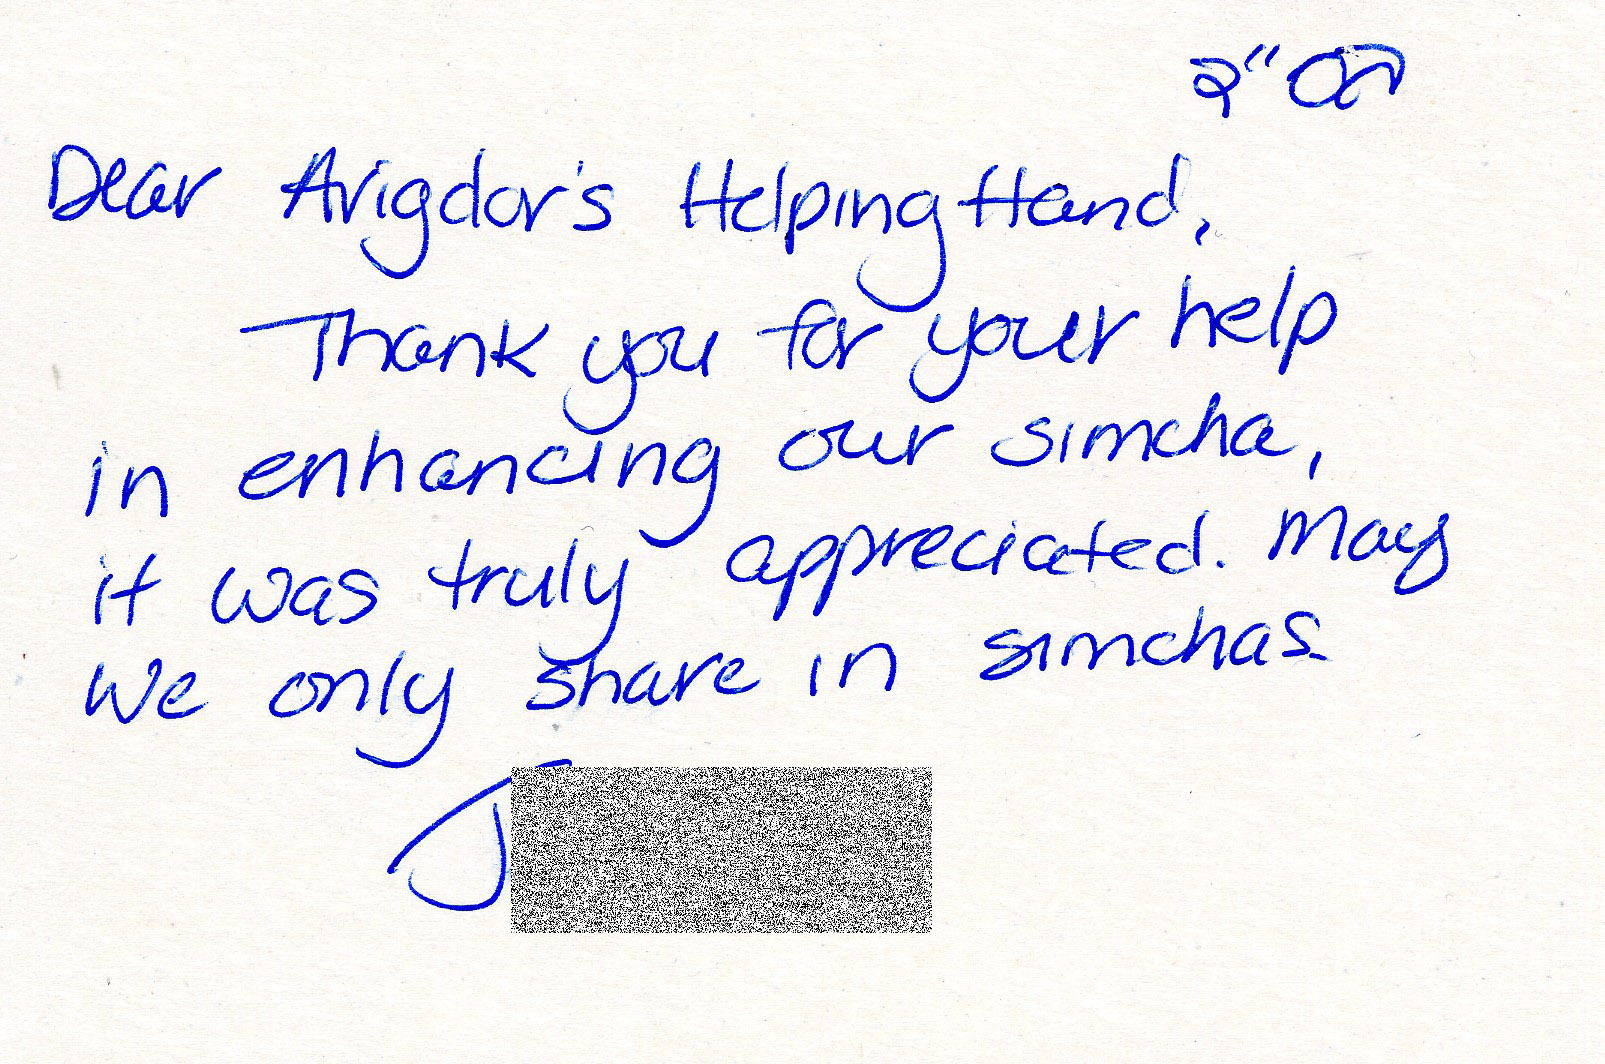 בס"ד
Dear Avigdor's Helping Hand,
Thank you for your help
in enhancing our simcha,
it was truly appreciated. May
we only share in simchas.
J